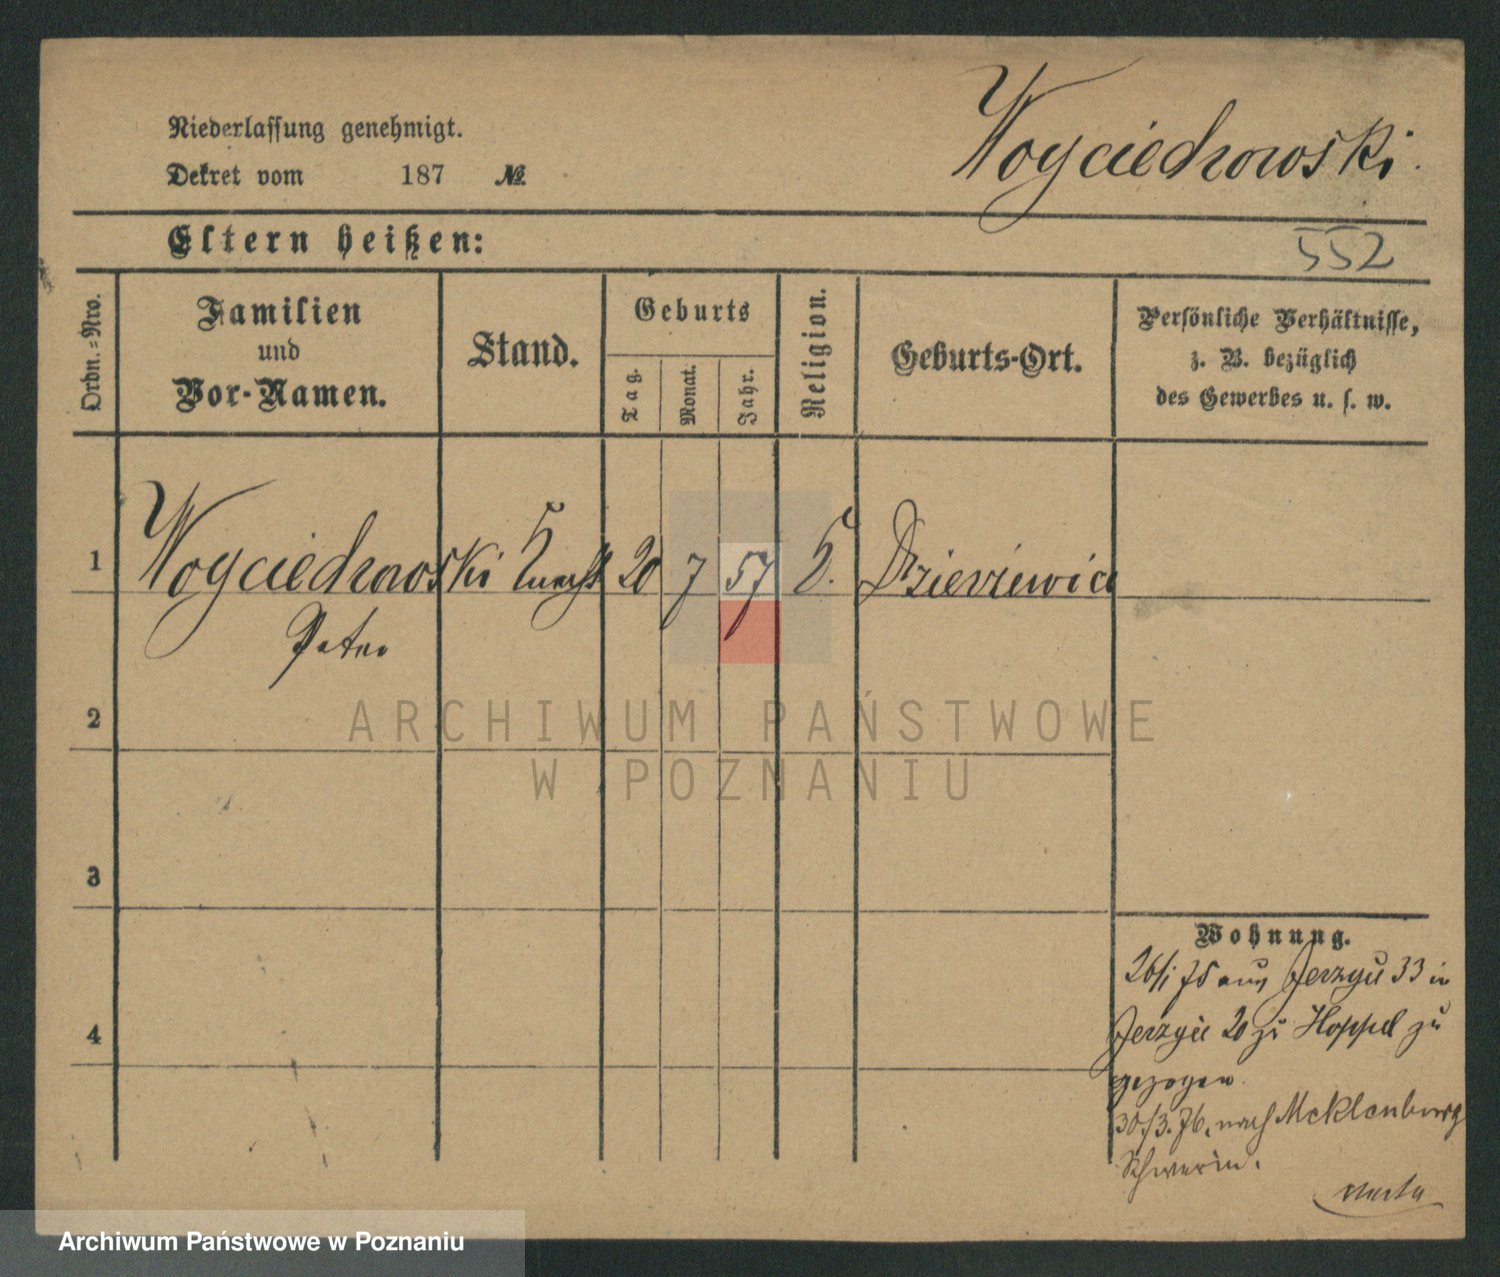 Niederlassung genehmigt.
Dekret vom 187 №
Woyciechowski.
Eltern heißen:
552
Ordn.=Nro.
Familien
und
Vor-Namen.
Stand.
Geburts
Tag.
Monat.
Jahr.
Religion.
Geburts-Ort.
Persönliche Verhältnisse,
z. B. bezüglich
des Gewerbes u. s. w.
1 Woyciechowski Knecht 20 7 57 K.
Peter
2
ARCHIWUM PAŃSTWOWE
W POZNANIU
3
Wohnung.
26/1 75 aus Jerzyce 33 in
4
Jerzyce 20 zu Hoppel zu
gezogen.
30./3. 76. nach Mecklenburg
Schwerin.
Archiwum Państwowe w Poznaniu